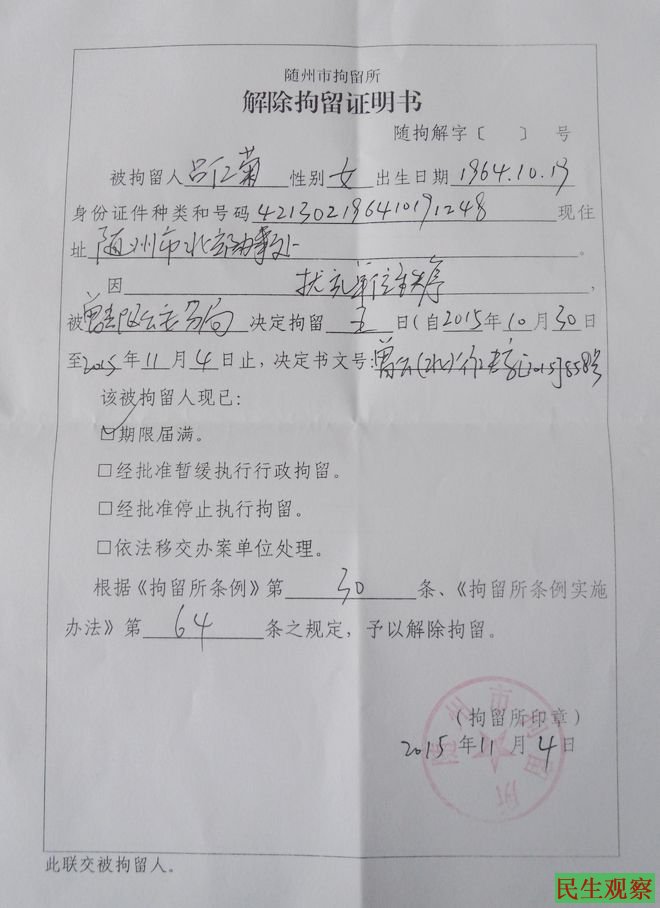 随州市拘留所
解除拘留证明书
随拘解字〔 〕 号
被拘留人吕仁菊 性别女 出生日期1964.10.19
身份证件种类和号码421302196410191248 现住
址随州市北郊办事处。
因 扰乱单位秩序,
被曾都区公安分局 决定拘留 五 日(自2015年10月30日
至2015年11月4日止,决定书文号:曾公(北)行 [2015]858号
该被拘留人现已:
☑期限届满。
□经批准暂缓执行行政拘留。
□经批准停止执行拘留。
□依法移交办案单位处理。
根据《拘留所条例》第 30 条、《拘留所条例实施
办法》第 64 条之规定,予以解除拘留。
随州市拘留所
(拘留所印章)
2015年11月4日
此联交被拘留人。
民生观察